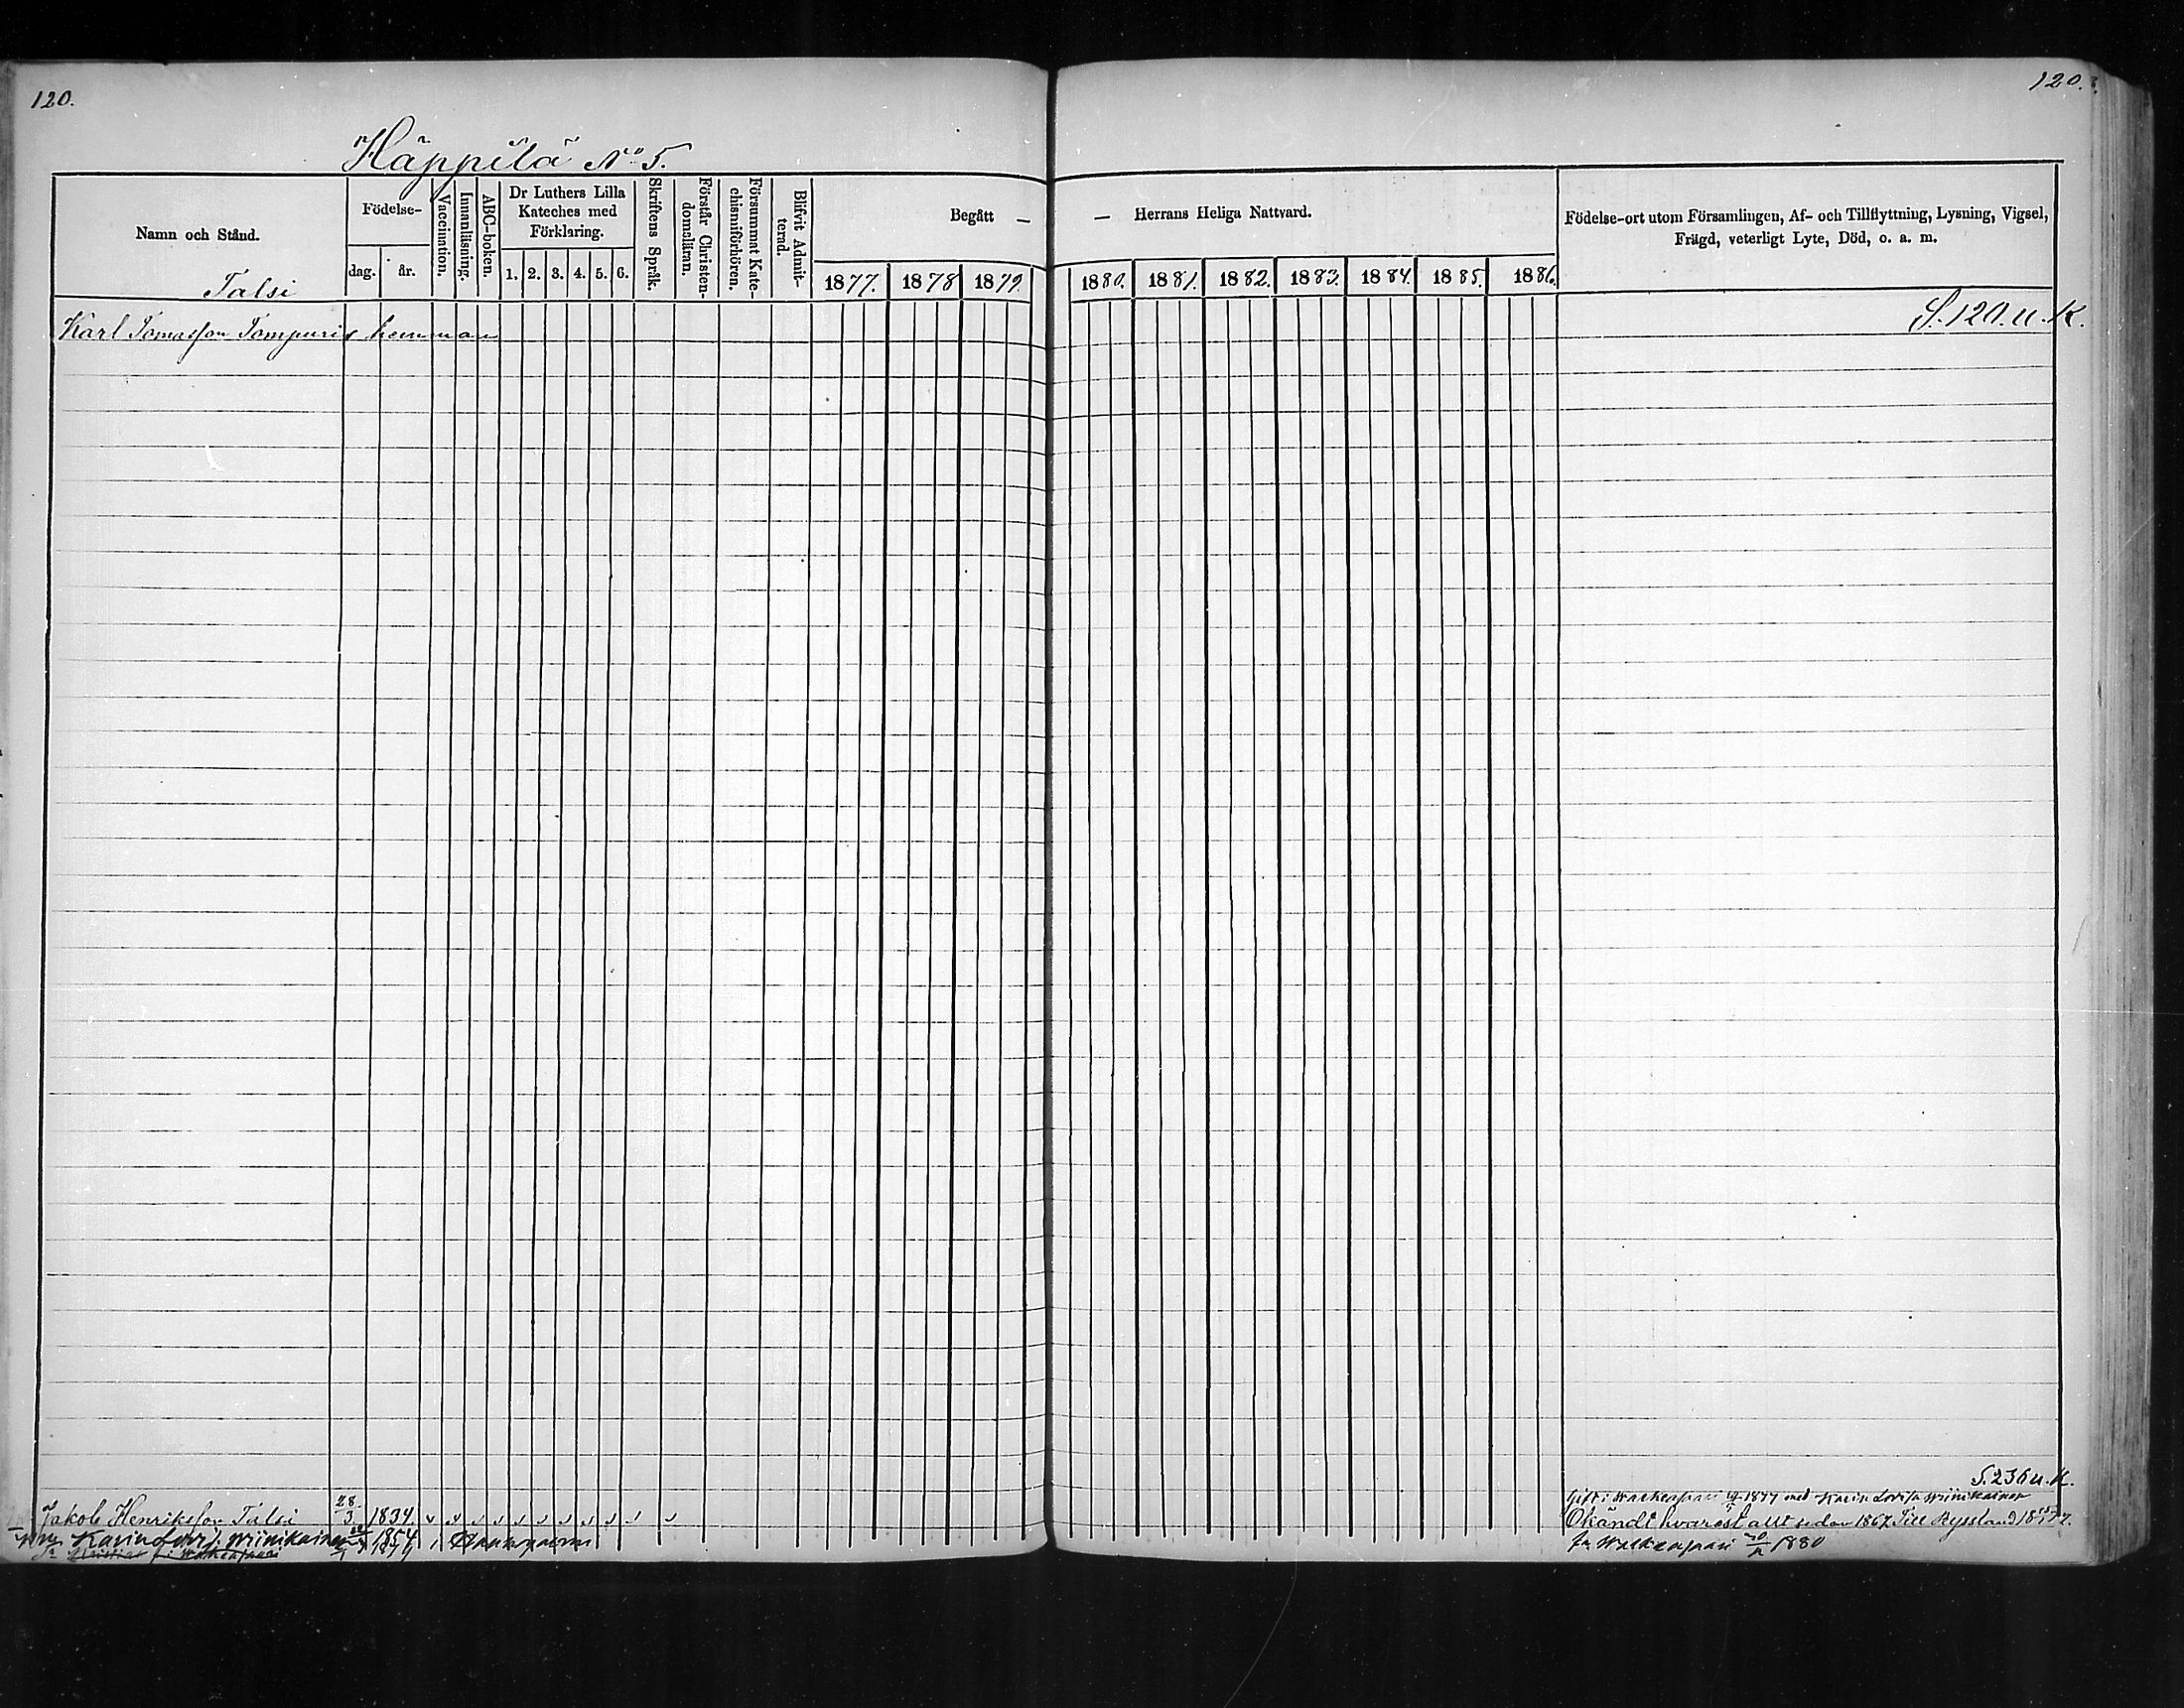 120.
120.
Häppilä No 5.
Namn och Stånd.
Födelse-
dag.
år.
Vaccination.
Innanläsning.
ABC-boken.
Dr Luthers Lilla
Kateches med
Förklaring.
1. 2. 3. 4. 5. 6.
Skriftens Språk.
Förstår Christen-
domsläran.
Försummat Kate-
chismiförhören.
Blifvit Admit-
terad.
Begått —
— Herrans Heliga Nattvard.
Födelse-ort utom Församlingen, Af- och Tillflyttning, Lysning, Vigsel,
Frägd, veterligt Lyte, Död, o. a. m.
1877. 1878 1879. 1880. 1881. 1882. 1883. 1884. 1885. 1886.
Talsi
S. 120. u. K.
Karl Tomasson Tompuris hemman
S. 236 u. K.
Gift i Walkeasaari 1877 med Karin
Jakob Henriksson Talsi 28/3 1834
Okändt hvarest allt sedan 1867. Till Ryssland
Karin Wiinikainen 1854
fr Walkeasaari 1880